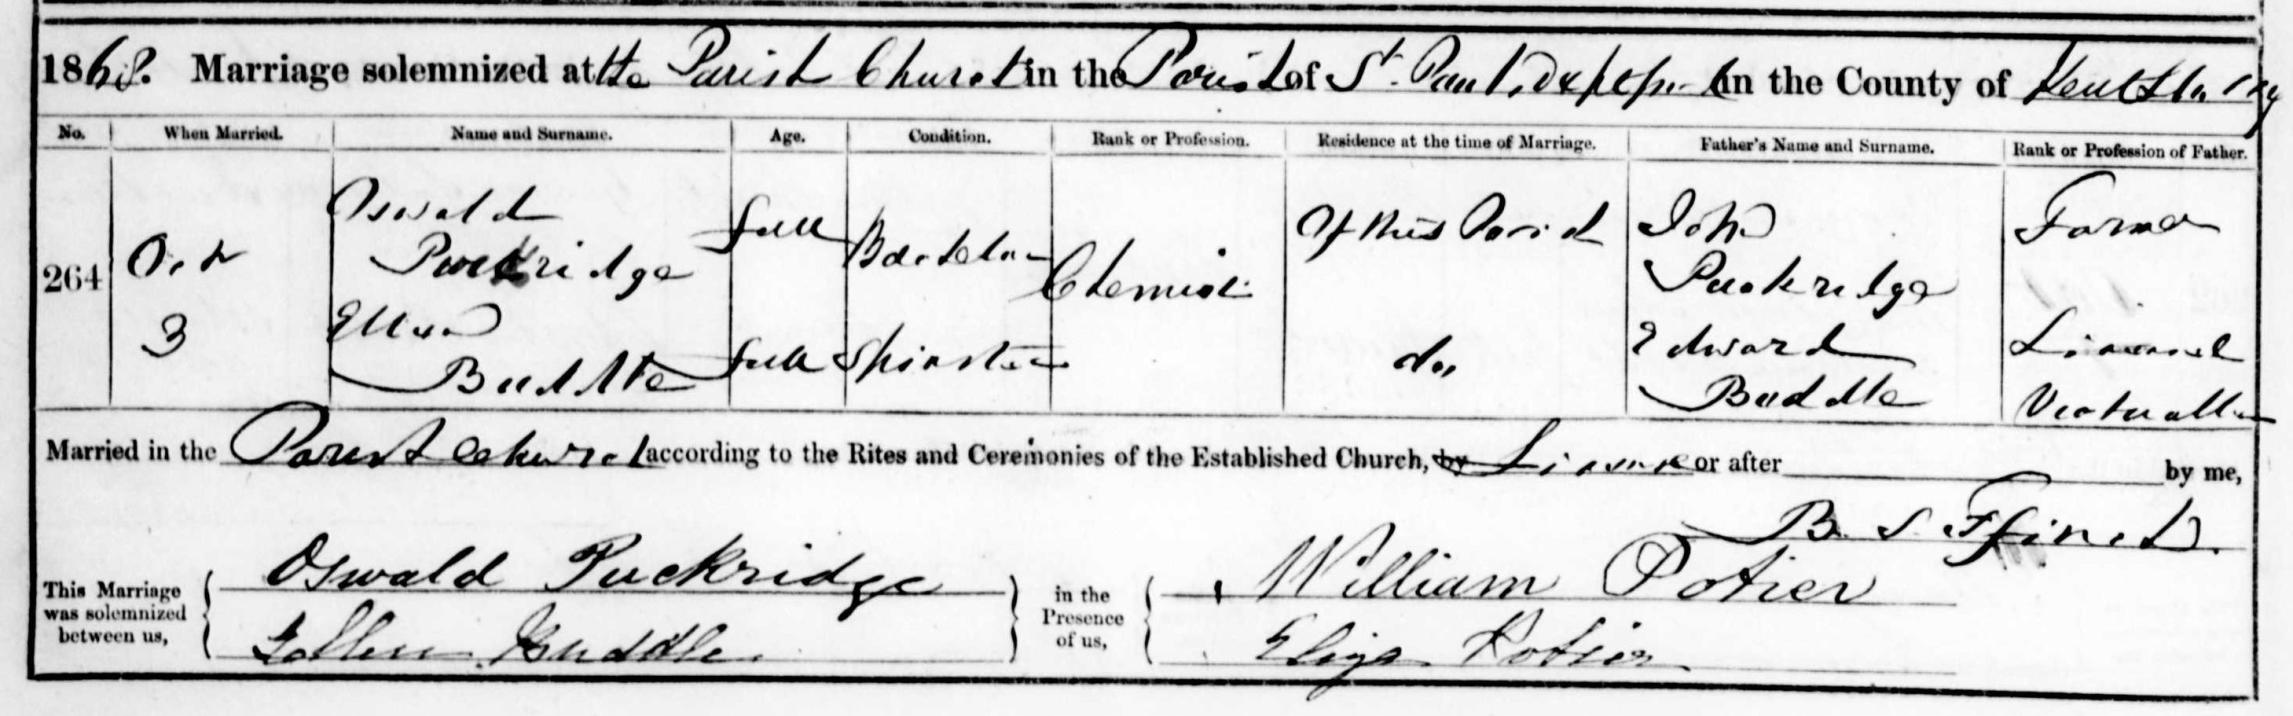 1868. Marriage solemnized at the Parish Church in the Parish of St. Paul, Deptford in the County of Kent & Surrey
No. When Married. Name and Surname. Age. Condition. Rank or Profession. Residence at the time of Marriage. Father's Name and Surname. Rank or Profession of Father.
264 Oct 3 Oswald Puckridge full Bachelor Chemist Of this Parish John Puckridge Farmer
Ellen Buddle full Spinster do, Edward Buddle Licensed Victualler
Married in the Parish Church according to the Rites and Ceremonies of the Established Church, by Licence or after by me,
B. S. Ffinch.
This Marriage was solemnized between us, Oswald Puckridge in the Presence of us, William Potier
Ellen Buddle Eliza Potier